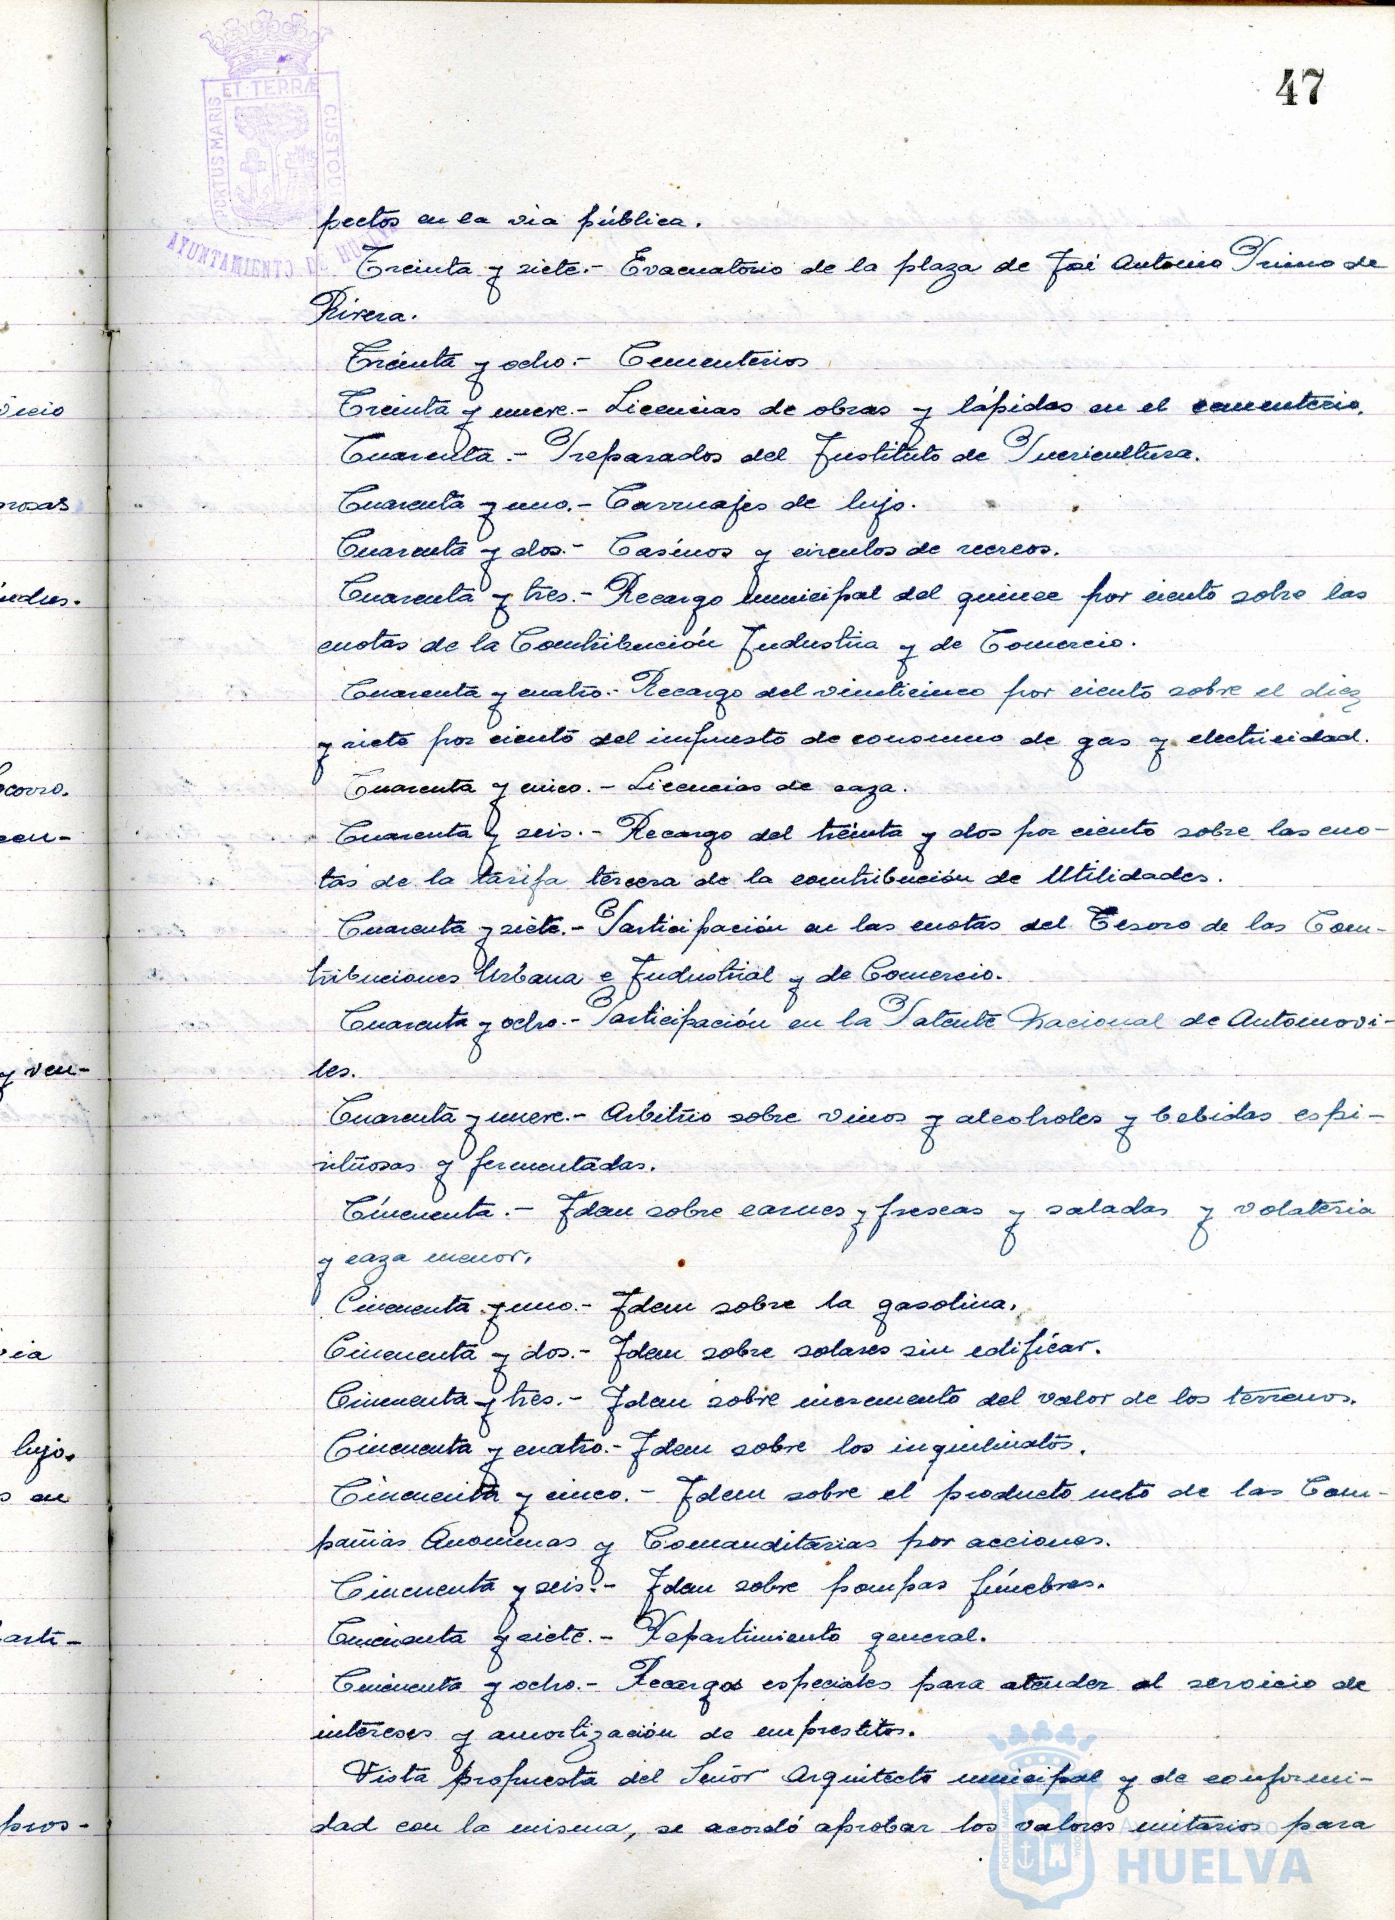 47
ET TERRÆ
PORTUS MARIS
CUSTODIA
AYUNTAMIENTO DE HUELVA
pectos en la via pública.
Treinta y siete.- Evacuatorio de la plaza de José Antonio Primo de
Rivera.
Treinta y ocho.- Cementerios
Treinta y nueve.- Licencias de obras y lápidas en el cementerio.
Cuarenta.- Preparados del Instituto de Puericultura.
Cuarenta y uno.- Carruajes de lujo.
Cuarenta y dos.- Casinos y circulos de recreos.
Cuarenta y tres.- Recargo municipal del quince por ciento sobre las
cuotas de la Contribución Industria y de Comercio.
Cuarenta y cuatro.- Recargo del vinticinco por ciento sobre el diez
y siete por ciento del impuesto de consumo de gas y electricidad.
Cuarenta y cinco.- Licencias de caza.
Cuarenta y seis.- Recargo del treinta y dos por ciento sobre las cuo-
tas de la tarifa tercera de la contribución de Utilidades.
Cuarenta y siete.- Participación en las cuotas del Tesoro de las Con-
tribuciones Urbana e Industrial y de Comercio.
Cuarenta y ocho.- Participación en la Patente Nacional de Automovi-
les.
Cuarenta y nueve.- Arbitrio sobre vinos y alcoholes y bebidas espi-
rituosas y fermentadas.
Cincuenta.- Idem sobre carnes y frescas y saladas y volateria
y caza menor.
Cincuenta y uno.- Idem sobre la gasolina.
Cincuenta y dos.- Idem sobre solares sin edificar.
Cincuenta y tres.- Idem sobre incremento del valor de los terrenos.
Cincuenta y cuatro.- Idem sobre los inquilinatos.
Cincuenta y cinco.- Idem sobre el producto neto de las Com-
pañias Anonimas y Comanditarias por acciones.
Cincuenta y seis.- Idem sobre pompas fúnebres.
Cincuenta y siete.- Repartimiento general.
Cincuenta y ocho.- Recargos especiales para atender al servicio de
intereses y amortización de emprestitos.
Vista propuesta del Señor Arquitecto municipal y de conformi-
dad con la misma, se acordó aprobar los valores unitarios para
Ayuntamiento de
HUELVA